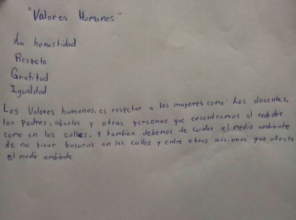 "Valores Humanos"
La honestidad
Respeto
Gratitud
Igualdad
Los Valores humanos, es respetar a los mayores como: Los docentes,
los padres, abuelos y otras personas que encontramos al rededor
como en las calles, y también debemos de cuidar el medio ambiente
de no tirar basuras en las calles y entre otras acciones que afecta
el medio ambiente.